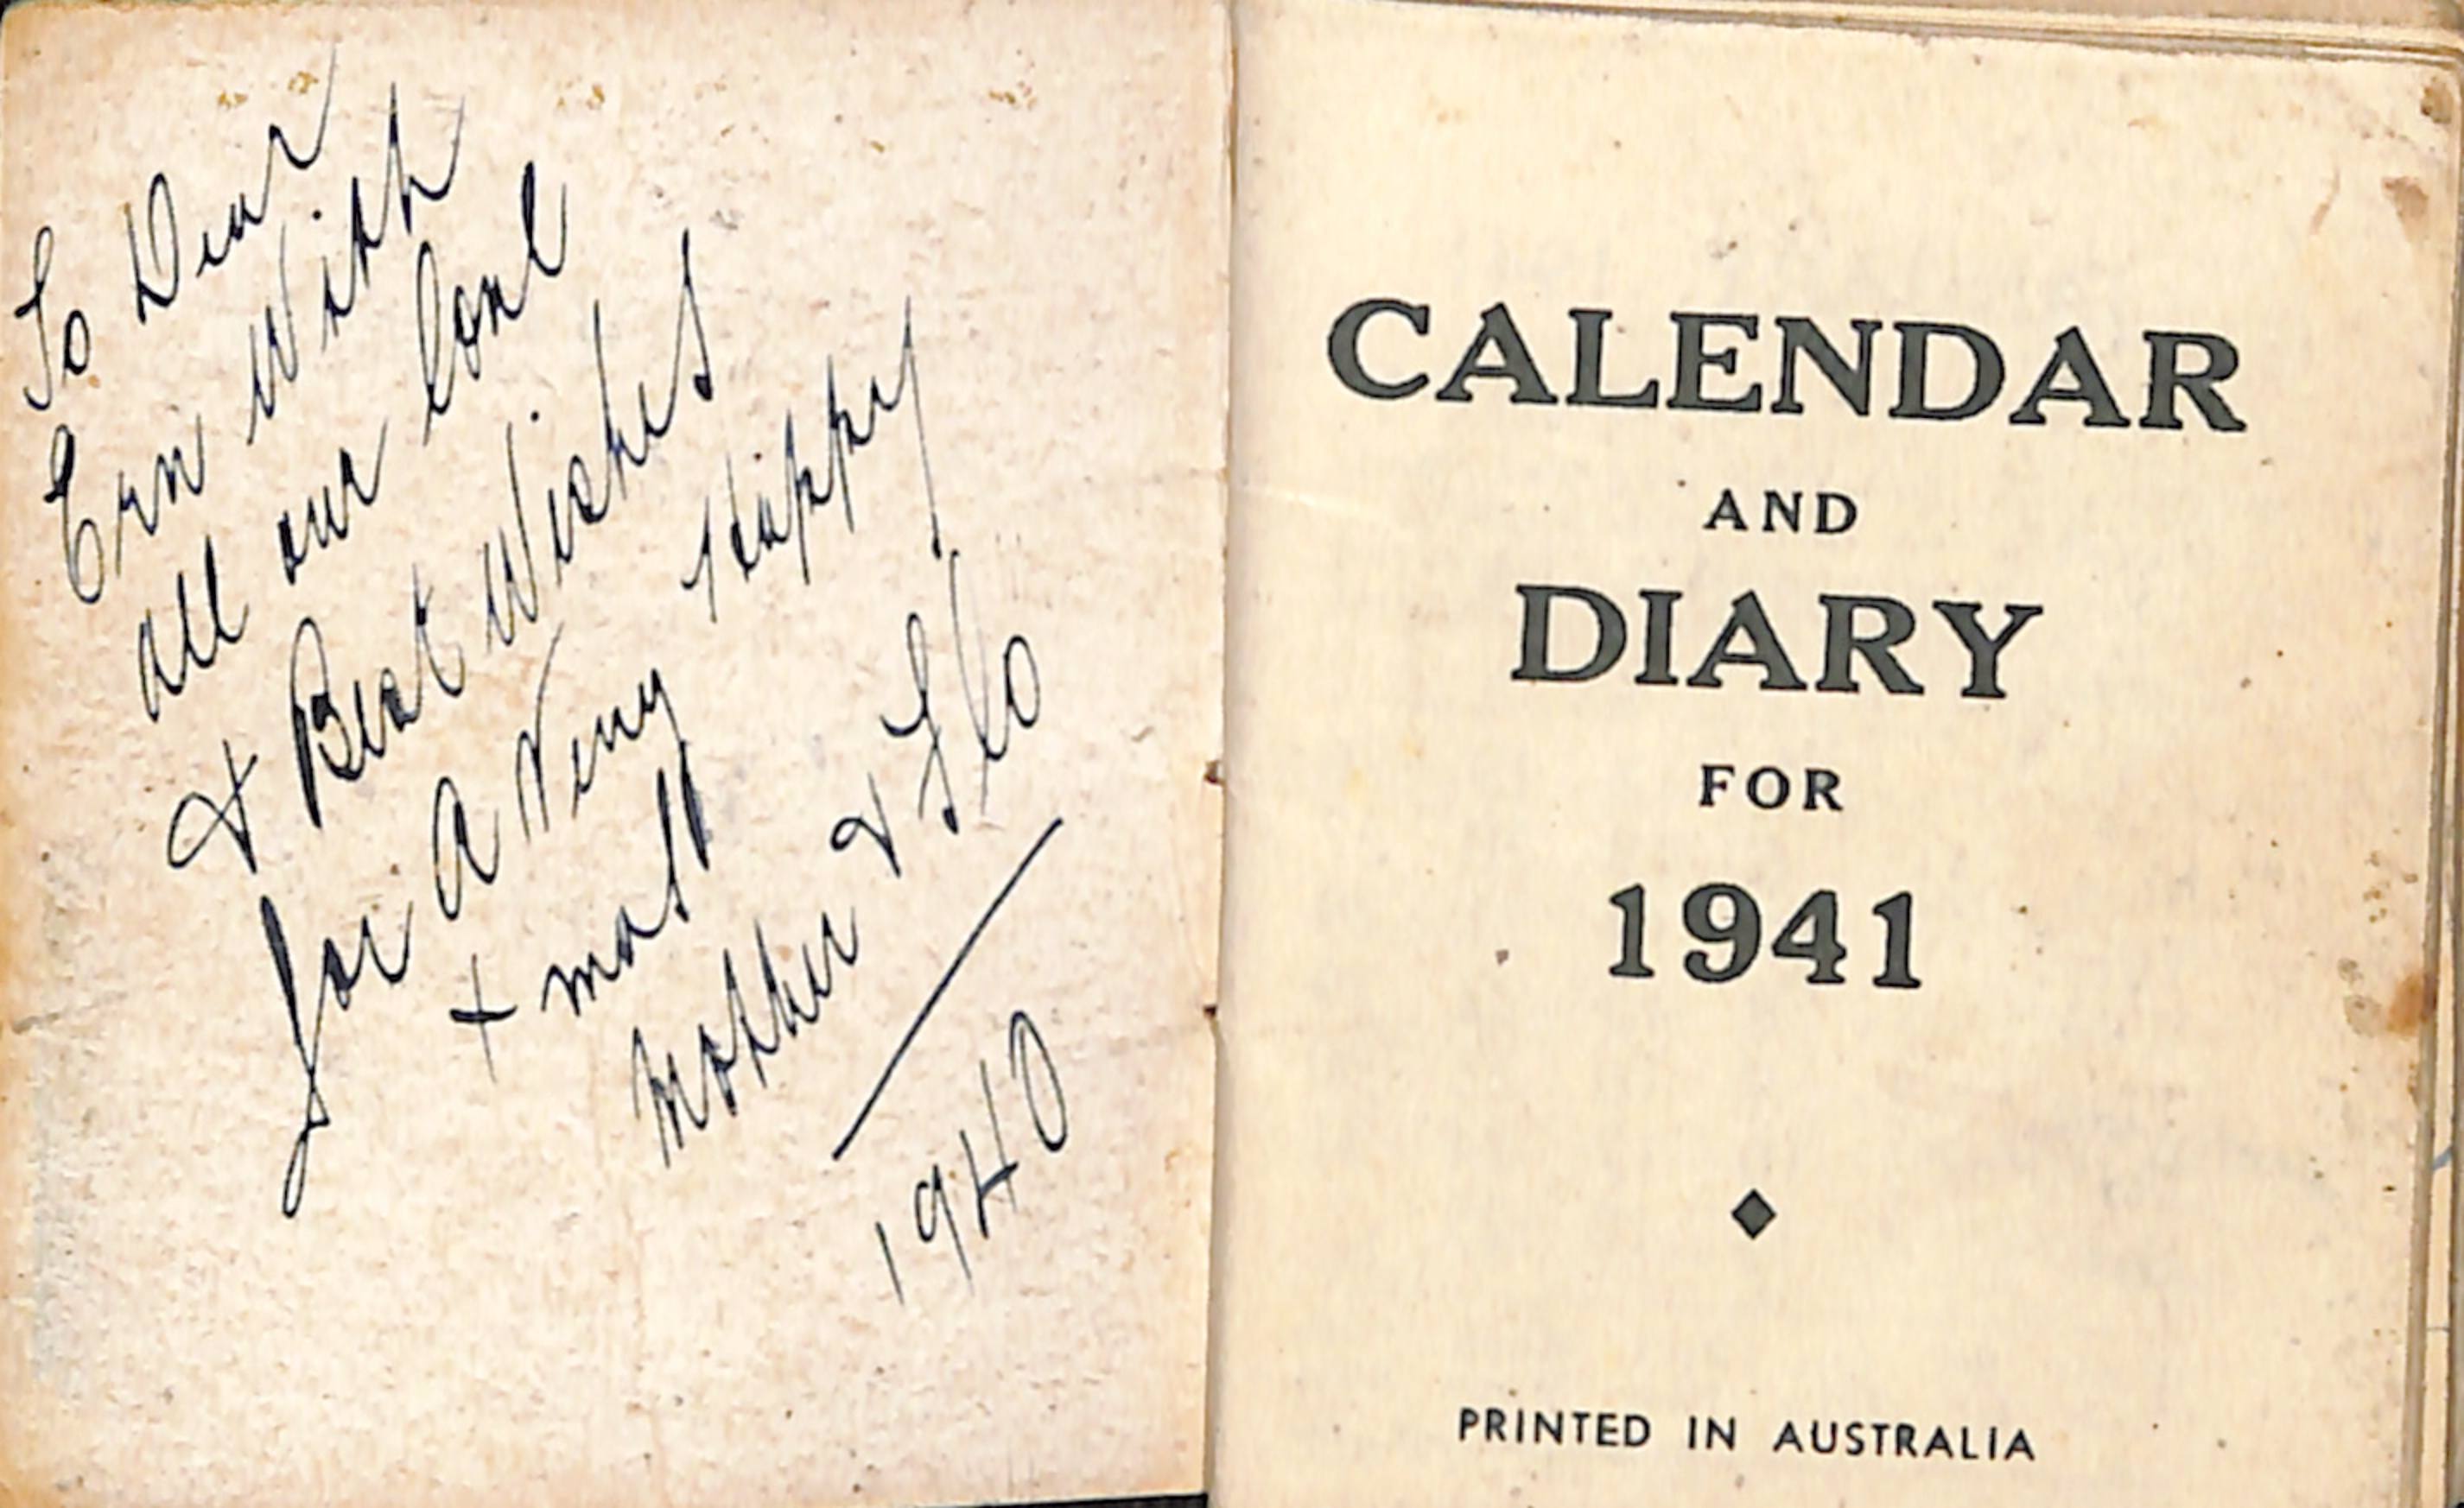 To Dear
Ern With
all our Love
& Best Wishes
for A Very Happy
+ mas
Mother & Flo
1940
CALENDAR
AND
DIARY
FOR
1941
PRINTED IN AUSTRALIA